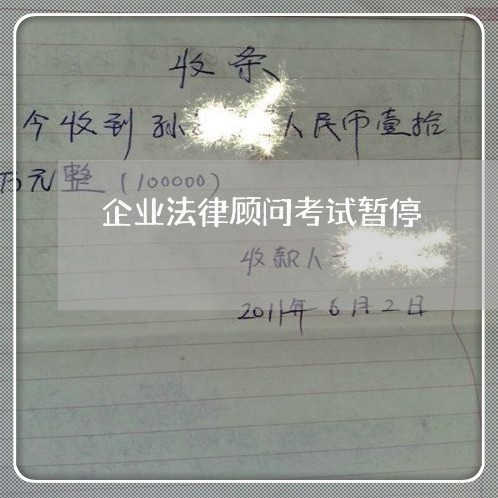 收条
今收到孙人民币壹拾
万元整(100000)
企业法律顾问考试暂停
收款人
2011年6月2日